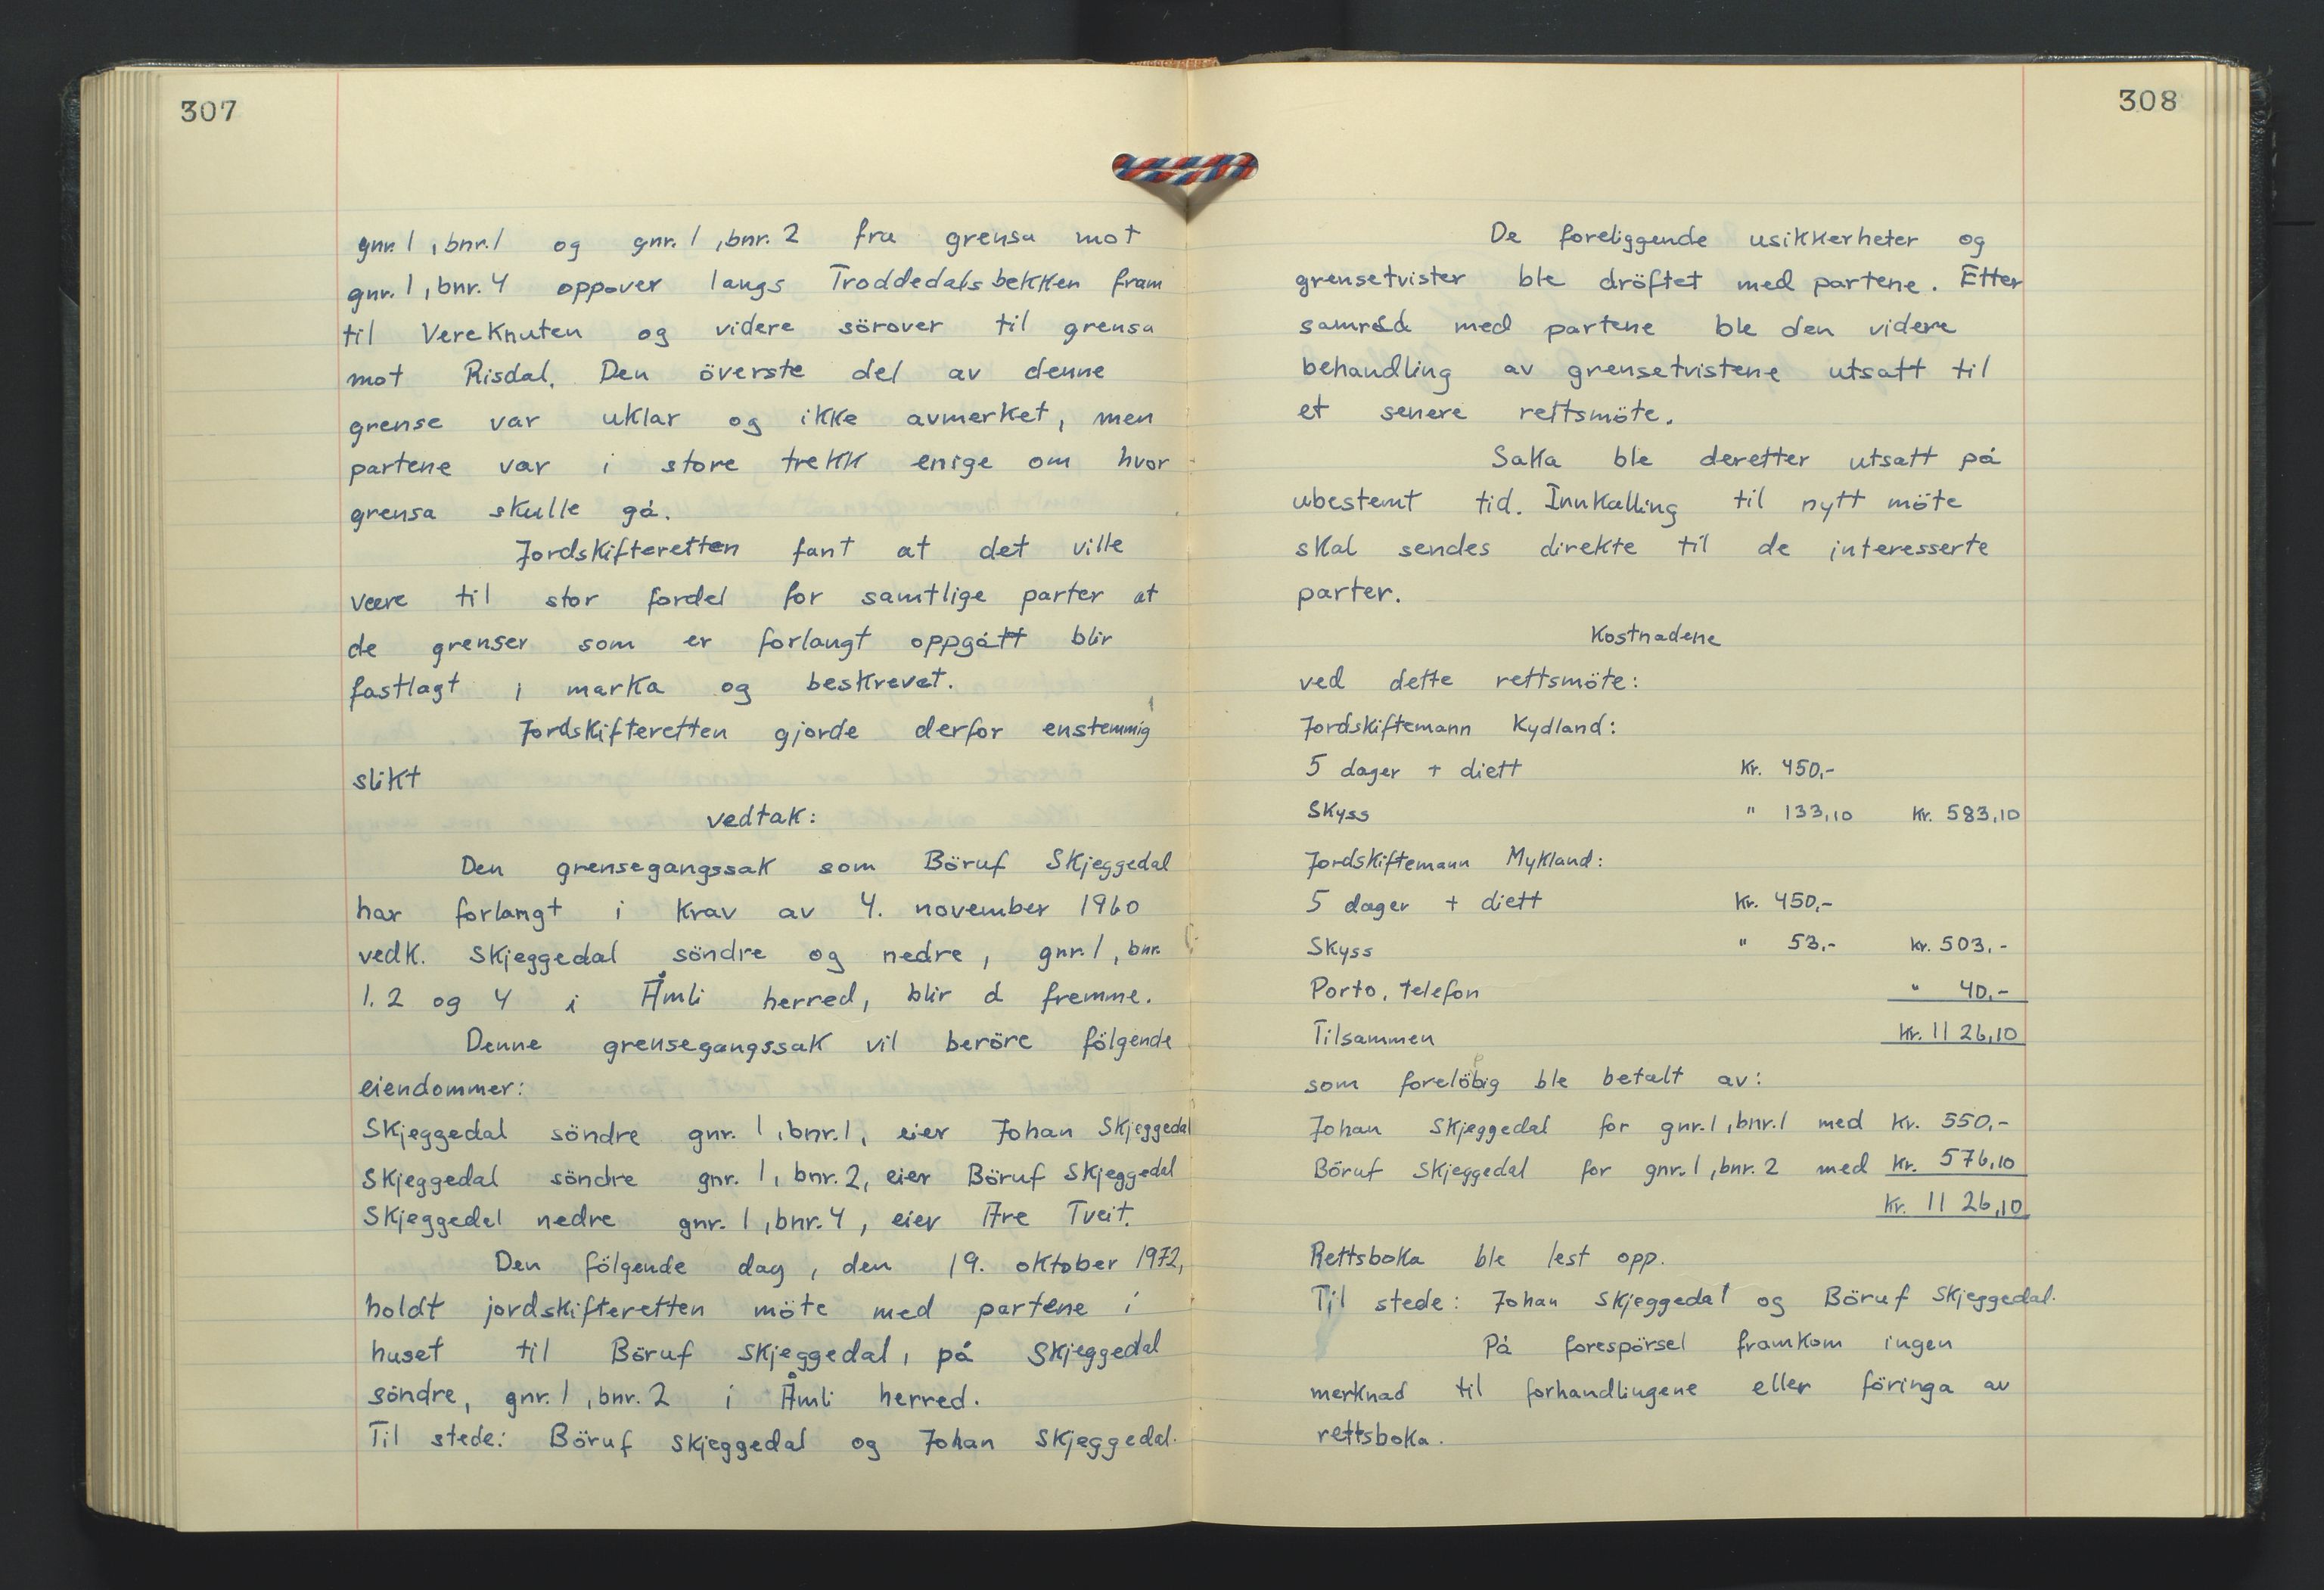 307
gnr. 1, bnr. 1 og gnr. 1, bnr. 2 fra grensa mot
gnr. 1, bnr. 4 oppover langs Troddedalsbekken fram
til Vereknuten og videre sörover til grensa
mot Risdal. Den överste del av denne
grense var uklar og ikke avmerket, men
partene var i store trekk enige om hvor
grensa skulle gå.
Jordskifteretten fant at det ville
være til stor fordel for samtlige parter at
de grenser som er forlangt oppgått blir
fastlagt i marka og beskrevet.
Jordskifteretten gjorde derfor enstemmig
slikt
vedtak:
Den grensegangssak som Böruf Skjeggedal
har forlangt i krav av 4. november 1960
vedk. Skjeggedal söndre og nedre, gnr. 1, bnr.
1. 2 og 4 i Åmli herred, blir å fremme.
Denne grensegangssak vil beröre fölgende
eiendommer:
Skjeggedal söndre gnr. 1, bnr. 1, eier Johan Skjeggedal
Skjeggedal söndre gnr. 1, bnr. 2, eier Böruf Skjeggedal
Skjeggedal nedre gnr. 1, bnr. 4, eier Are Tveit.
Den fölgende dag, den 19. oktober 1972,
holdt jordskifteretten möte med partene i
huset til Böruf Skjeggedal, på Skjeggedal
söndre, gnr. 1, bnr. 2 i Åmli herred.
Til stede: Böruf Skjeggedal og Johan Skjeggedal.
308
De foreliggende usikkerheter og
grensetvister ble dröftet med partene. Etter
samråd med partene ble den videre
behandling av grensetvistene utsatt til
et senere rettsmöte.
Saka ble deretter utsatt på
ubestemt tid. Innkalling til nytt möte
skal sendes direkte til de interesserte
parter.
Kostnadene
ved dette rettsmöte:
Jordskiftemann Kydland:
5 dager + diett Kr. 450,-
Skyss " 133,10 Kr. 583,10
Jordskiftemann Mykland:
5 dager + diett Kr. 450,-
Skyss " 53,- Kr. 503,-
Porto, telefon " 40,-
Tilsammen Kr. 1126,10
som forelöbig ble betalt av:
Johan Skjeggedal for gnr. 1, bnr. 1 med Kr. 550,-
Böruf Skjeggedal for gnr. 1, bnr. 2 med Kr. 576,10
Kr. 1126,10
Rettsboka ble lest opp.
Til stede: Johan Skjeggedal og Böruf Skjeggedal.
På forespörsel framkom ingen
merknad til forhandlingene eller föringa av
rettsboka.